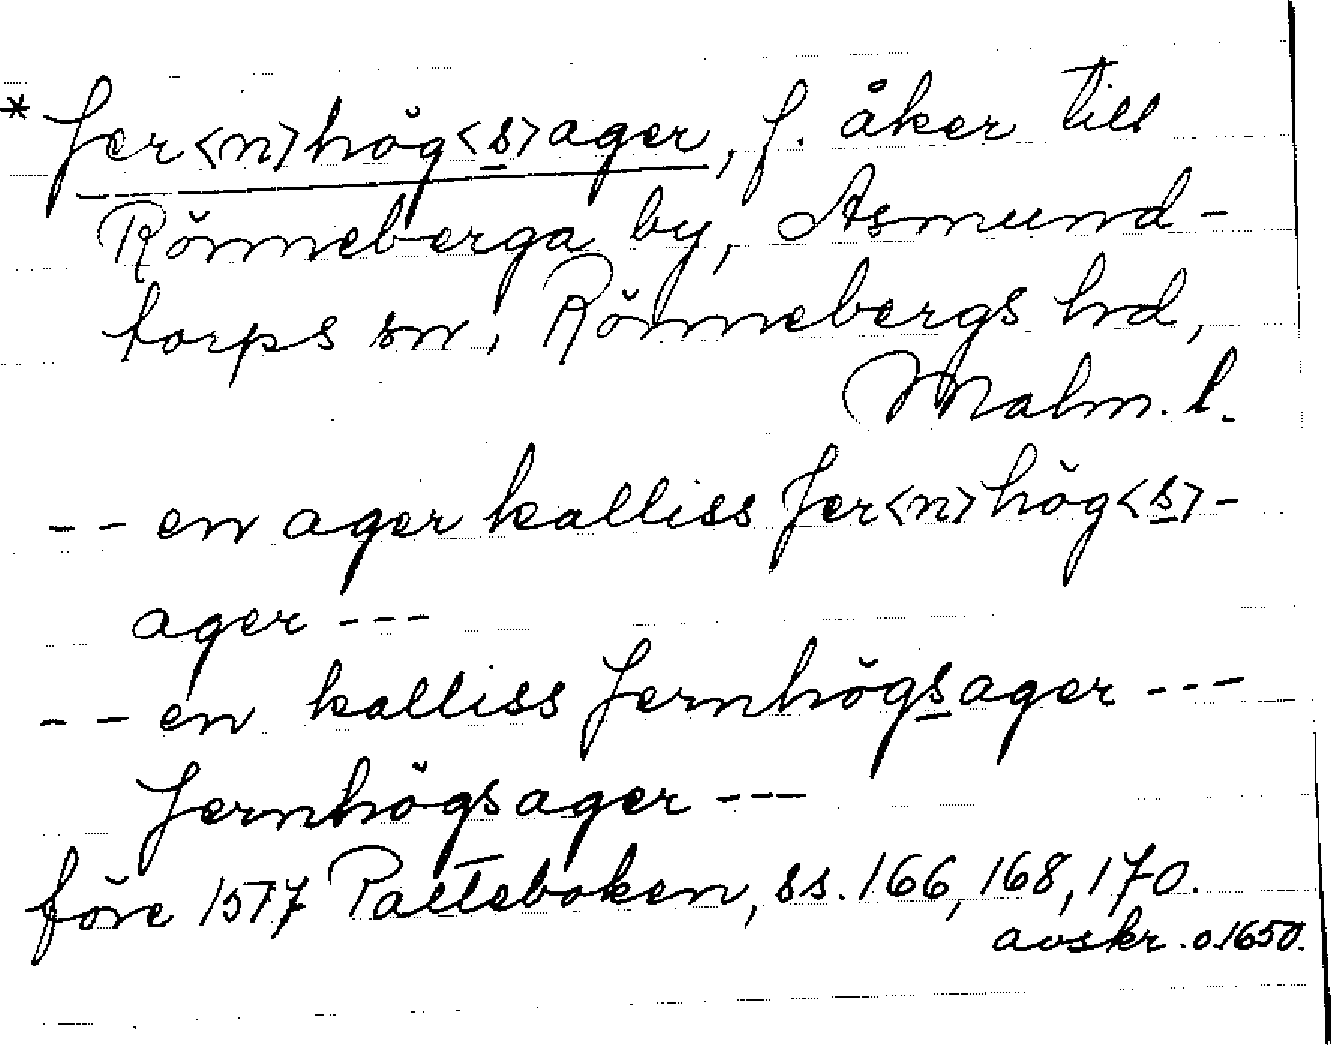 * Jer<n>hög<s>ager, f. åker till
Rönneberga by, Asmund-
torps sn, Rönnebergs hd,
Malm. l.
-- en ager kalliss Jer<n>hög<s>-
ager ---
-- en kalliss Jernhögsager ---
Jernhögsager ---
före 1517 Palteboken, ss. 166, 168, 170.
avskr. o. 1650.